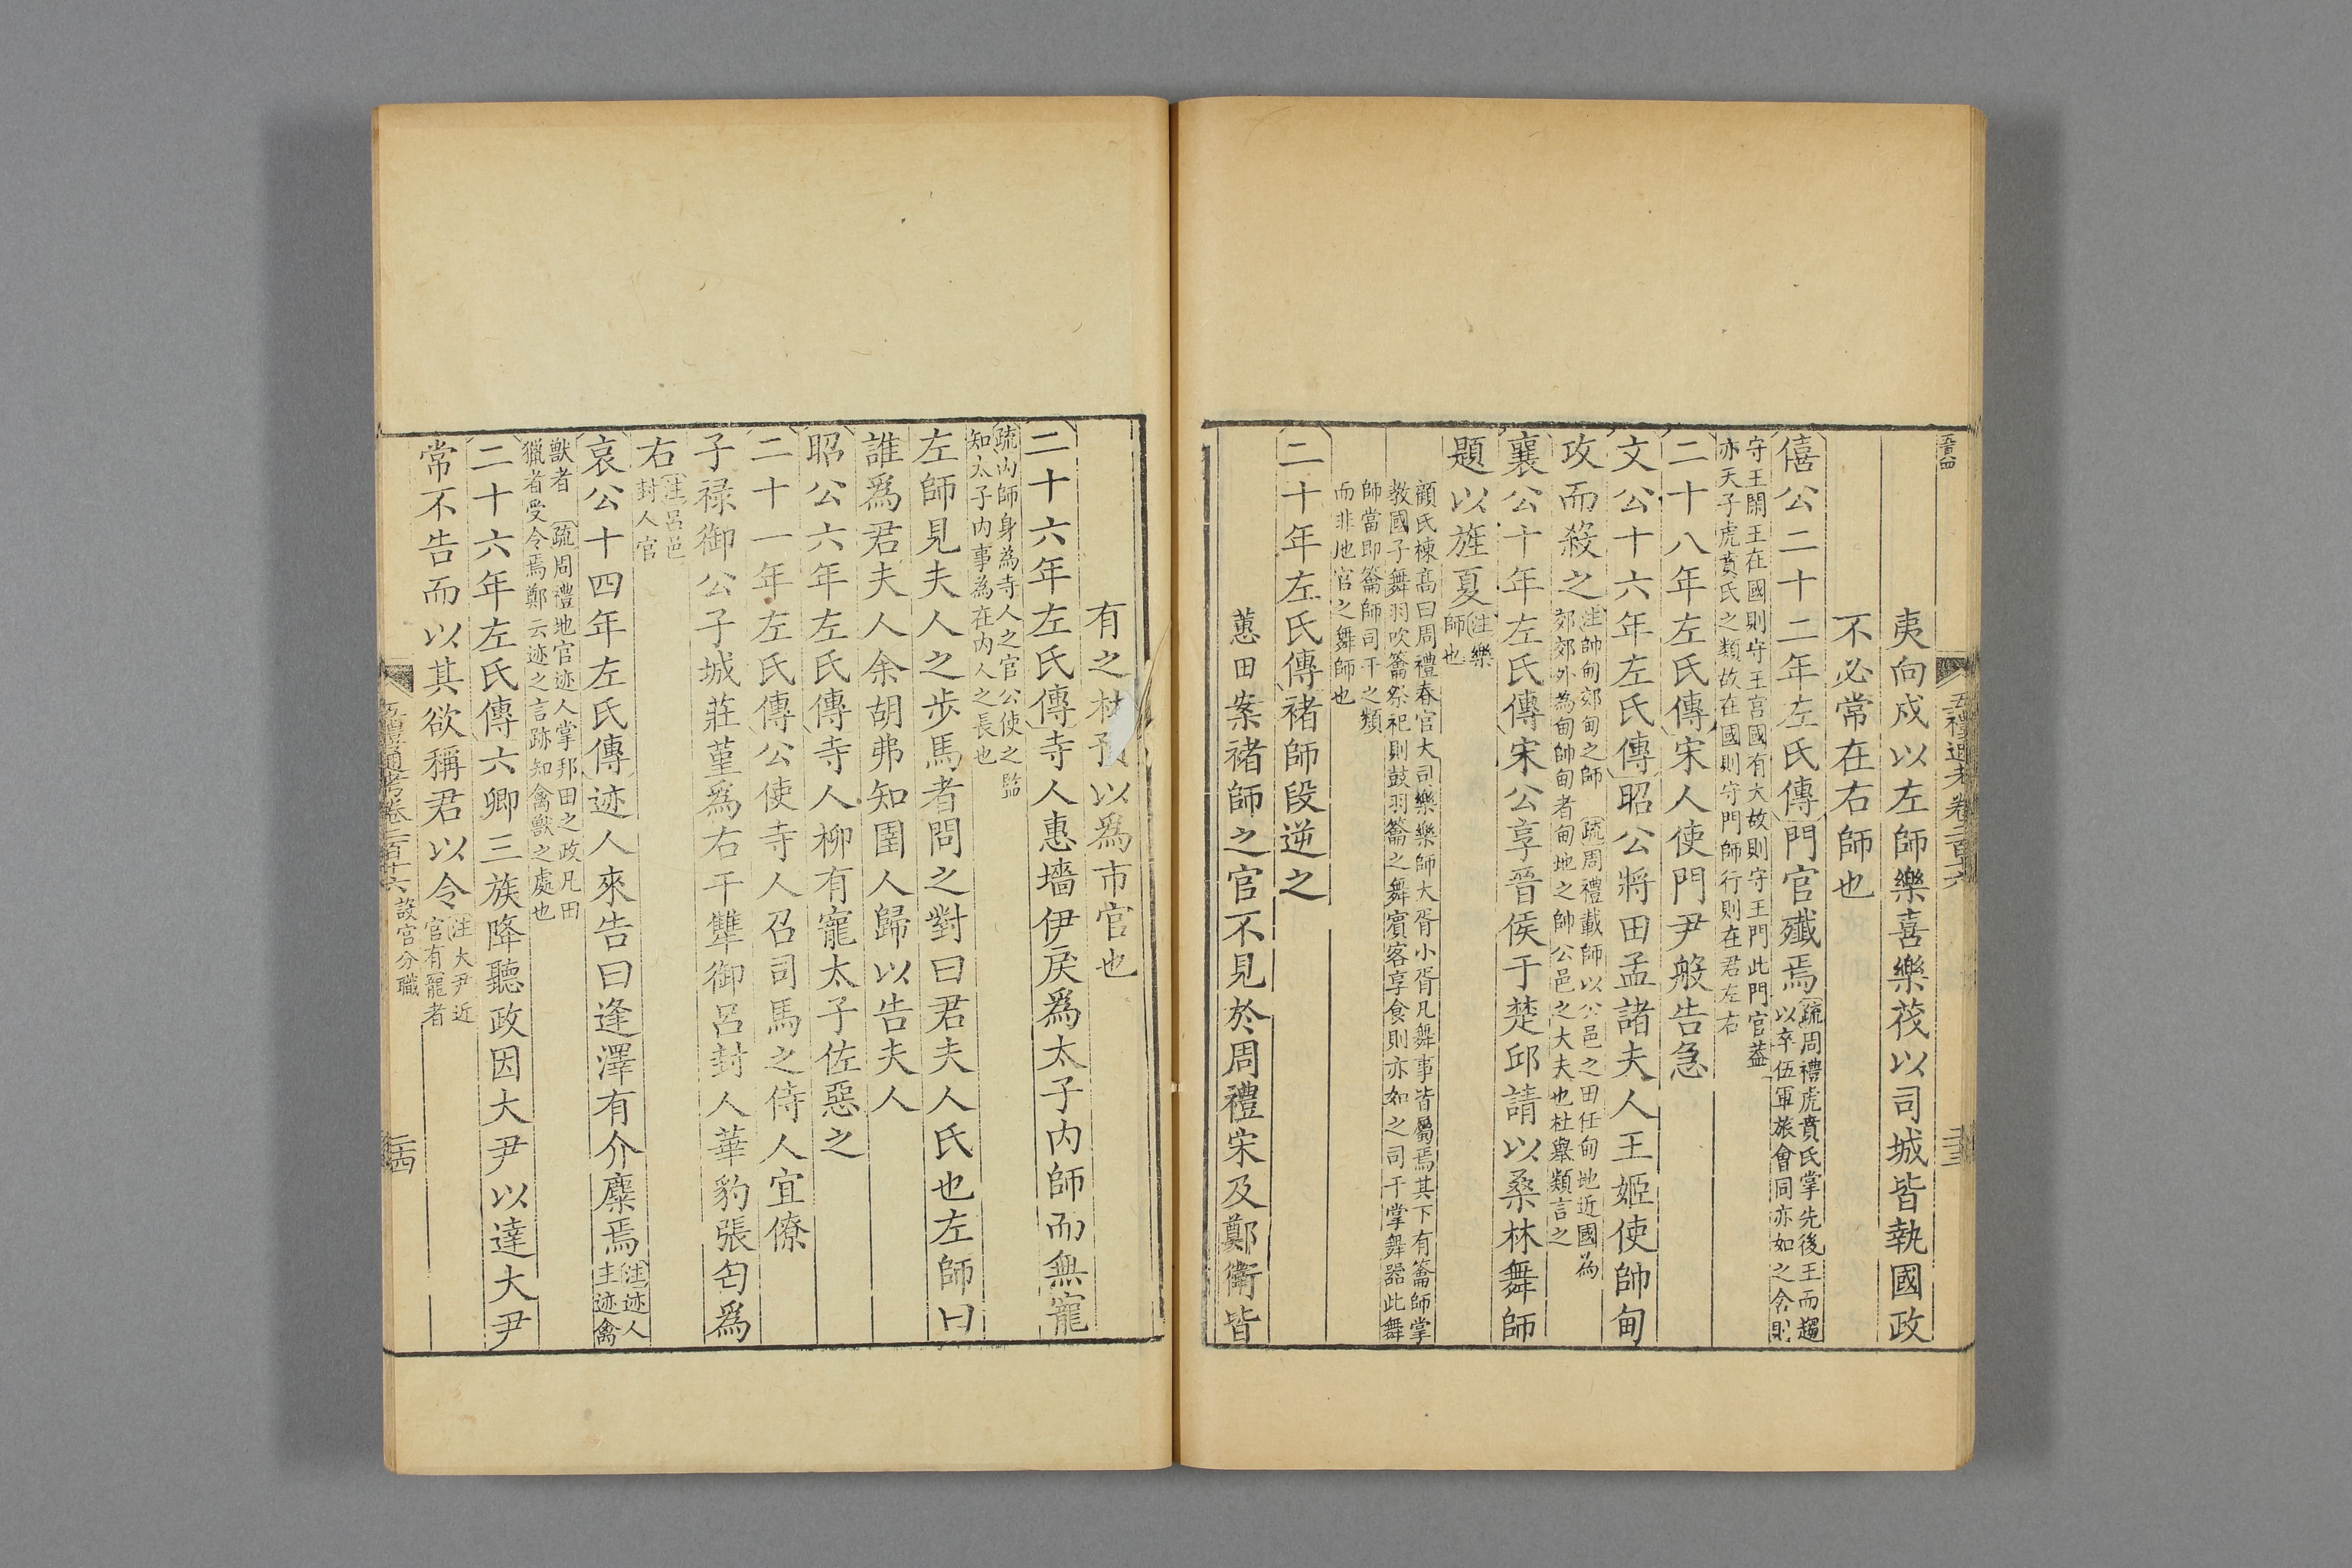 五禮通考卷二百十六
夷向戍以左師樂喜樂筏以司城皆執國政
不必常在右師也
僖公二十二年左氏傳門官殲焉疏周禮虎賁氏掌先後王而趨以卒伍軍旅會同亦如之舍則
守王閑王在國則守王宮國有大故則守王門此門官蓋亦天子虎賁氏之類故在國則守門師行則在君左右
二十八年左氏傳宋人使門尹般告急
文公十六年左氏傳昭公將田孟諸夫人王姬使帥甸
攻而殺之注帥甸郊甸之師 疏周禮載師以公邑之田任甸地近國為郊郊外為甸帥甸者甸地之帥公邑之大夫也杜舉類言之
襄公十年左氏傳宋公享晉侯于楚邱請以桑林舞師
題以旌夏注樂師也
顧氏棟高曰周禮春官大司樂樂師大胥小胥凡舞事皆屬焉其下有籥師掌教國子舞羽吹籥祭祀則鼓羽籥之舞賓客享食則亦如之司干掌舞器此舞
師當即籥師司干之類而非地官之舞師也
二十年左氏傳褚師段逆之
蕙田案褚師之官不見於周禮宋及鄭衛皆
有之杜預以爲市官也
二十六年左氏傳寺人惠墻伊戾爲太子內師而無寵
疏內師身為寺人之官公使之監知太子內事為在內人之長也
左師見夫人之步馬者問之對曰君夫人氏也左師曰
誰爲君夫人余胡弗知圉人歸以告夫人
昭公六年左氏傳寺人柳有寵太子佐惡之
二十一年左氏傳公使寺人召司馬之侍人宜僚
子祿御公子城莊堇爲右干犨御呂封人華豹張匄爲
右注呂邑封人官
哀公十四年左氏傳迹人來告曰逢澤有介麇焉注迹人主迹禽
獸者 疏周禮地官迹人掌邦田之政凡田獵者受令焉鄭云迹之言跡知禽獸之處也
二十六年左氏傳六卿三族降聽政因大尹以達大尹
常不告而以其欲稱君以令注大尹近官有寵者
五禮通考卷二百十六 設官分職
二十四